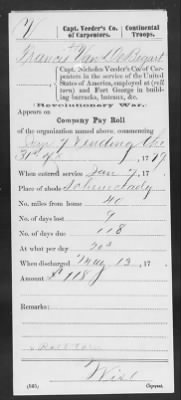 V
Capt. Veeder's Co. of Carpenters.
Continental Troops.
Francis Van De Bogart
Capt. Nicholas Veeder's Co. of Carpenters in the service of the United States of America, employed at (roll torn) and Fort George in building barracks, bateaux, &c.
(Revolutionary War.)
Appears on
Company Pay Roll
of the organization named above, commencing
Jan 7 & ending the
31 of, 1779
When entered service Jan 7, 17
Place of abode Schenectady
No. miles from home 40
No. of days lost 9
No. of days due 118
At what per day 20s
When discharged May 13, 17
Amount £ 118
Remarks:
Roll torn
Wise
(565)
Copyist.